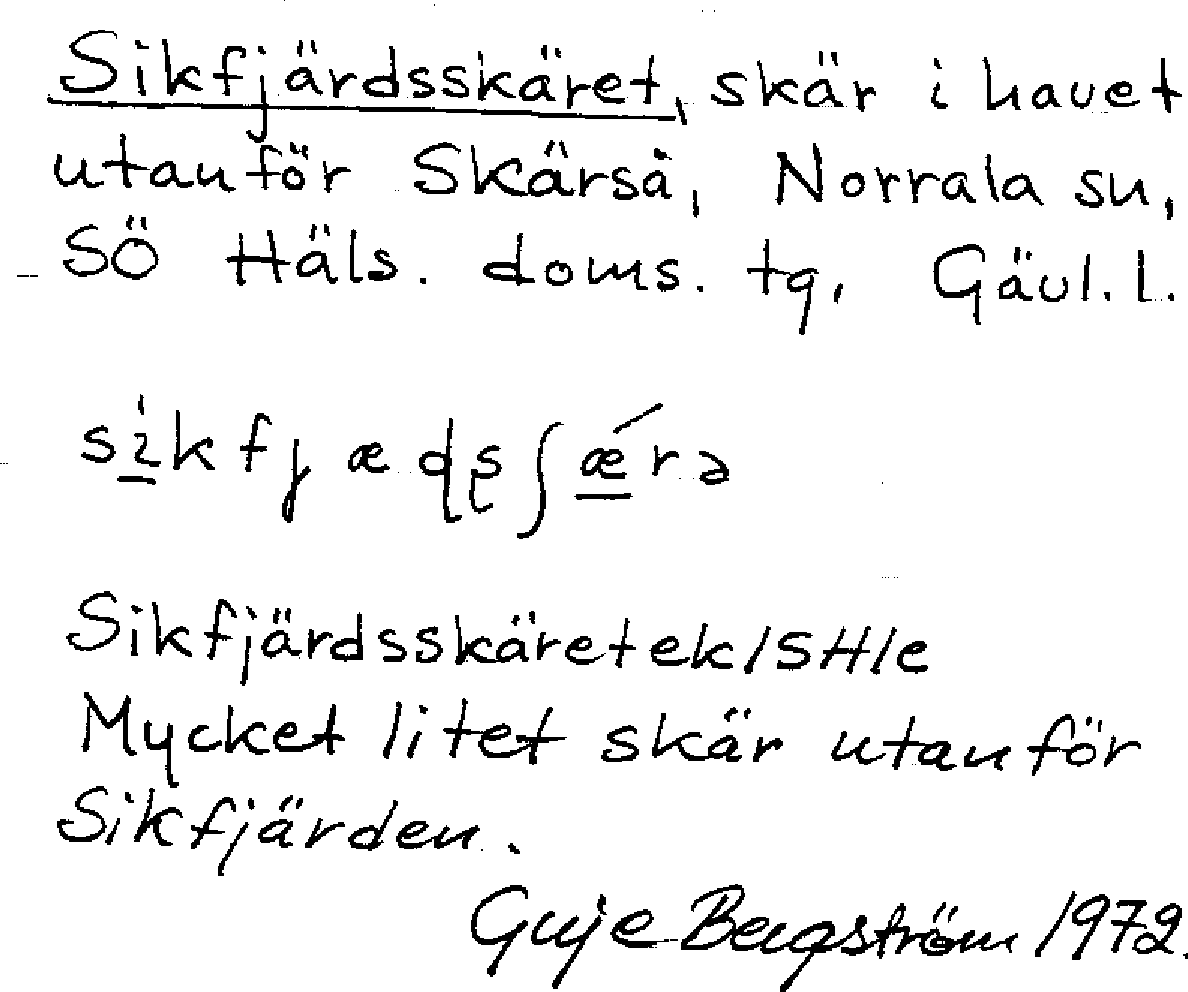 Sikfjärdsskäret, skär i havet
utanför Skärså, Norrala sn,
SÖ Häls. doms. tg, Gävl. l.
sìkfjæḍṣʃǽrə
Sikfjärdsskäret ek/SH/e
Mycket litet skär utanför
Sikfjärden.
Bergström 1972.